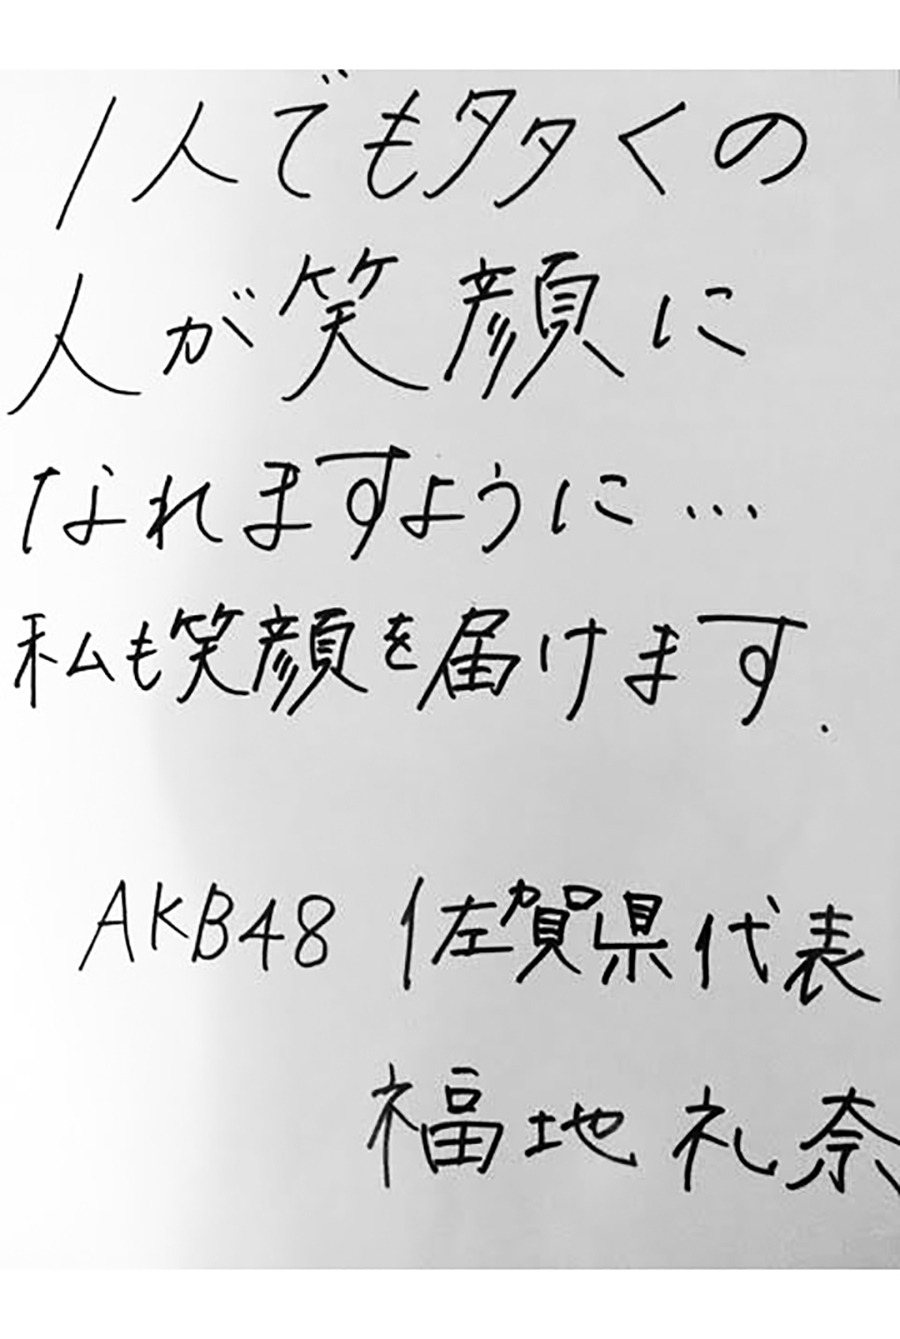 1人でも多くの
人が笑顔に
なれますように…
私も笑顔を届けます.
AKB48 佐賀県代表
福地礼奈